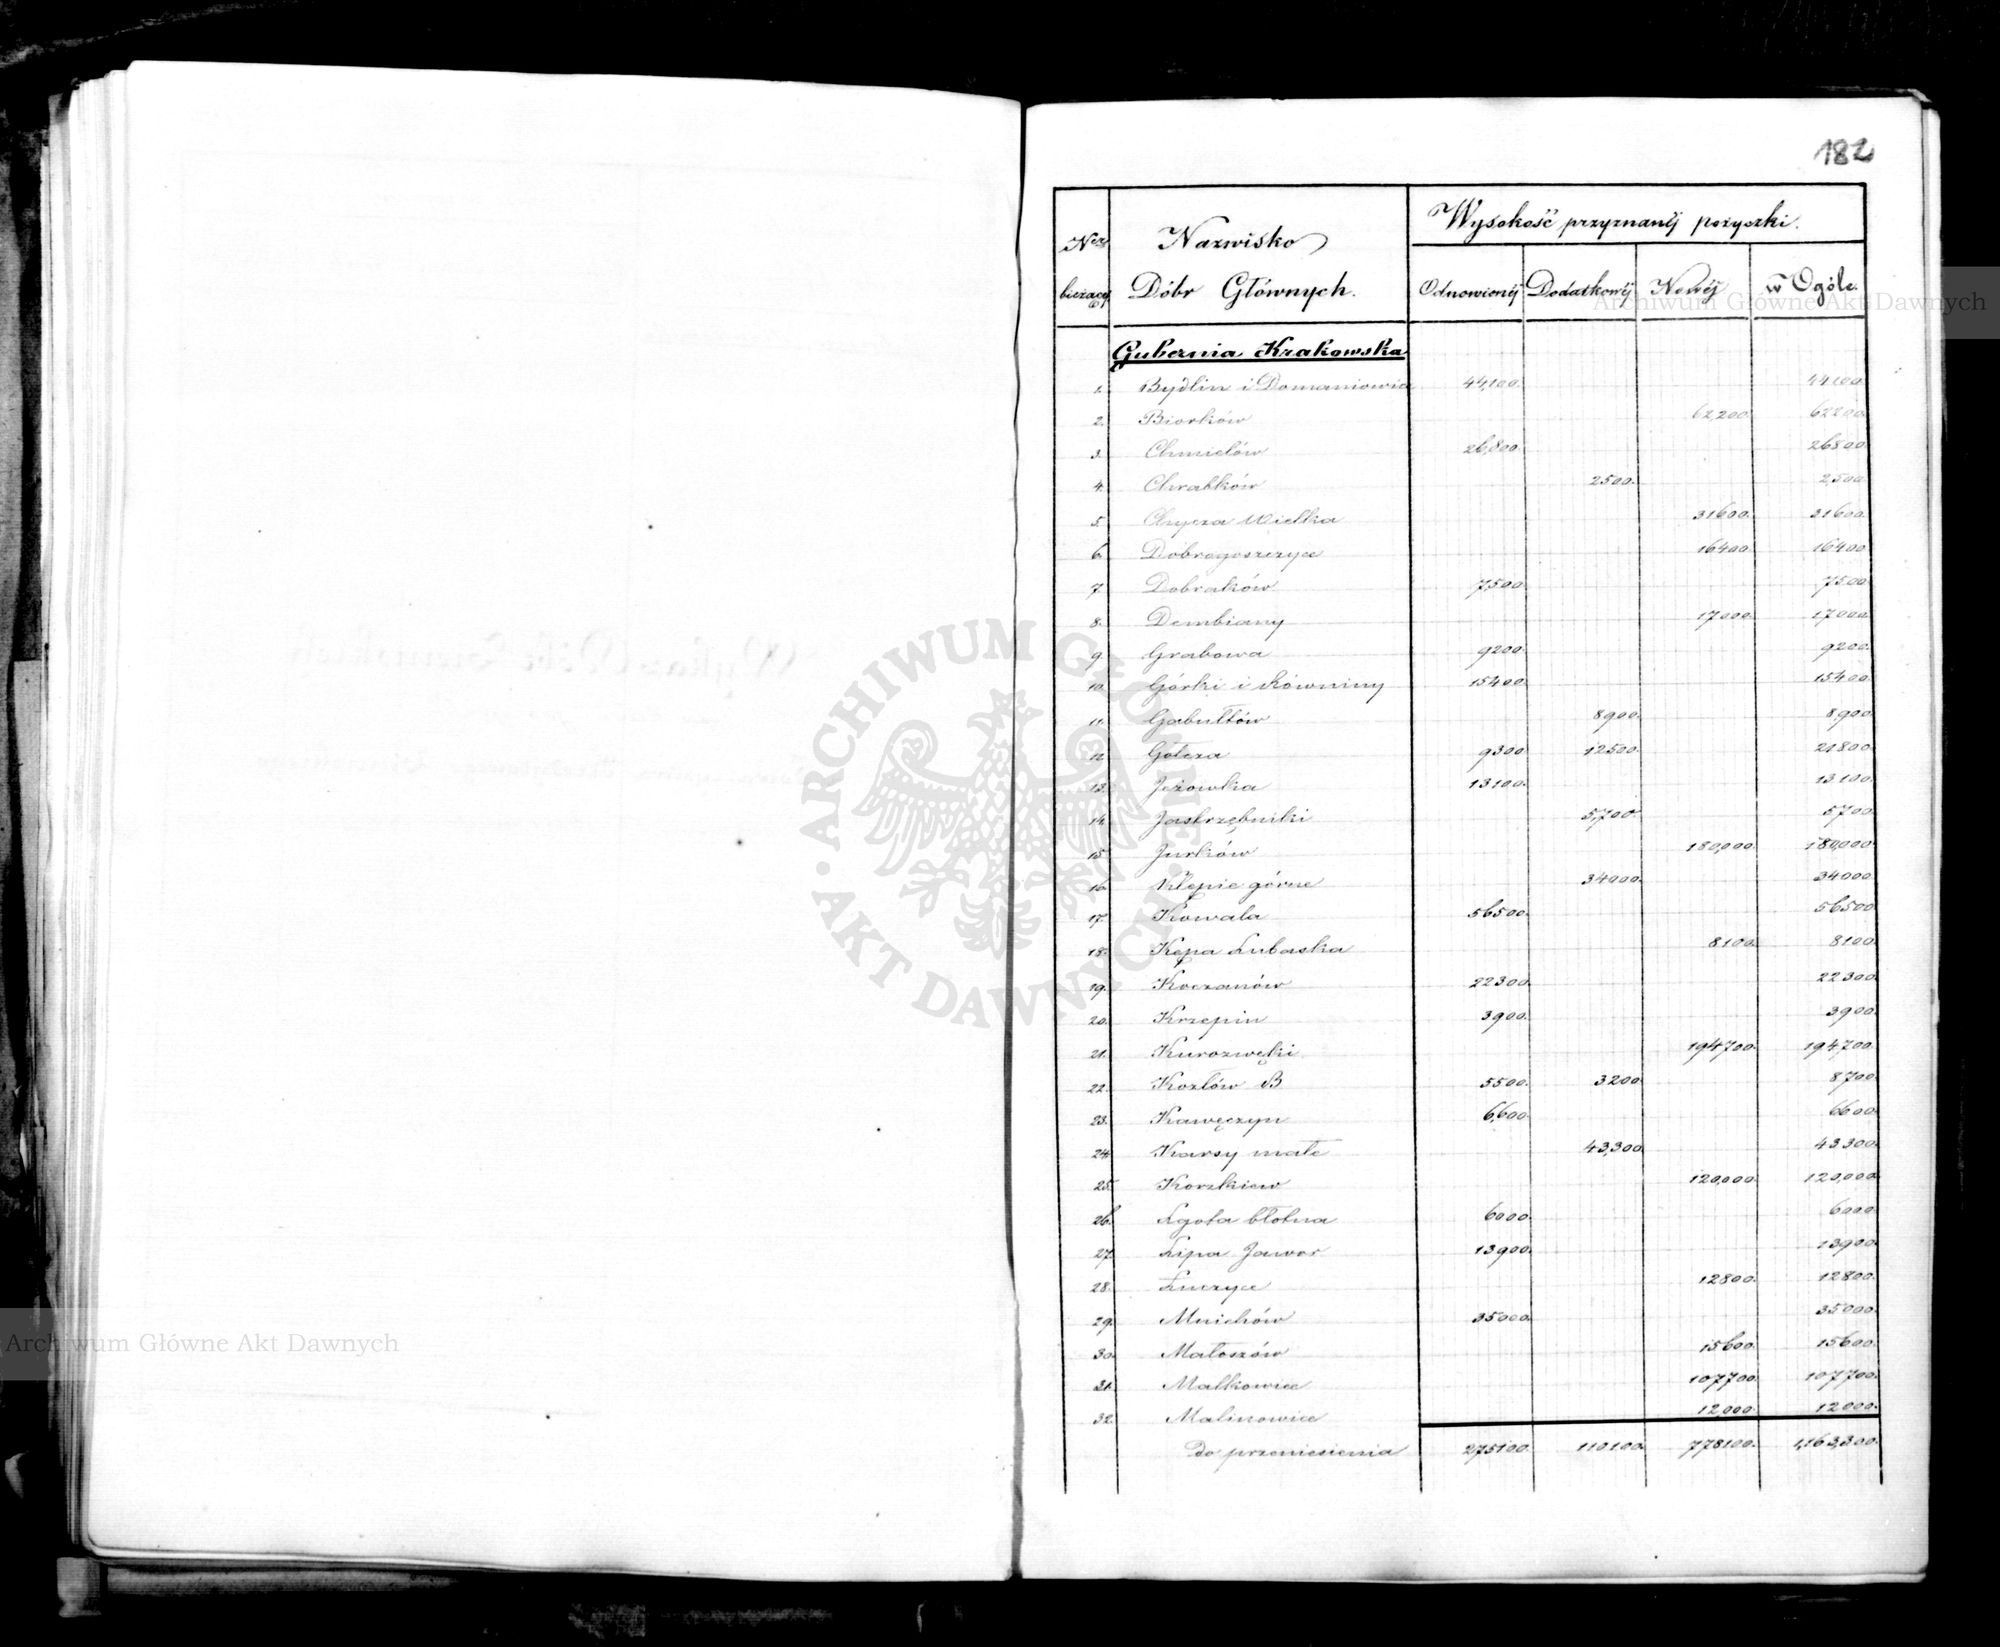 182
Wysokość przyznanéj pożyczki.
Ner Nazwisko
bieżący Dóbr Głównych. Odnowionéj Dodatkowéj Nowéj w Ogóle.
Archiwum Główne Akt Dawnych
Gubernia Krakowska
1. Bydlin i Domaniewice 44,100. 44100.
2. Biorków 62,200. 62200.
3. Chmielów 26,800. 26800.
4. Chrabków 2500. 2,500.
5. Chycza Wielka 31600. 31600.
6. Dobrogoszczyce 16400. 16400.
7. Dobraków 7,500. 7500.
8. Dembiany 17000. 17,000.
9. Grabowa 9200. 9200.
10. Górki i Równiny 15400. 15400.
11. Gabułtów 8900. 8,900.
12. Gołcza 9300 12500. 21800.
13. Jeżowka 13100. 13100.
14. Jastrzębniki 5,700. 5,700.
15. Jurków 180,000. 180,000.
16. Kłępie górne 34000. 34000.
17. Kowala 56500. 56500.
18. Kępa Lubaska 8100. 8100.
19. Koczanów 22300. 22300.
20. Krzepin 3900. 3900.
21. Kurozwęki 194700. 194,700.
22. Kozłów B 5500. 3200. 8700.
23. Kawęczyn 6,600. 6600.
24. Karsy małe 43,300. 43300.
25. Korzkiew 120,000. 120,000.
26. Lgota błotna 6000. 6000.
27. Lipa Jawor 13900. 13900.
28. Luczyce 12800. 12800.
29. Mnichów 35000. 35000.
30. Małoszów 15600. 15600.
31. Malkowice 107700. 107700.
32. Malinowice 12,000. 12000.
do przeniesienia 275100. 110100. 778100. 1,163,300.
ARCHIWUM GŁÓWNE AKT DAWNYCH
Archiwum Główne Akt Dawnych